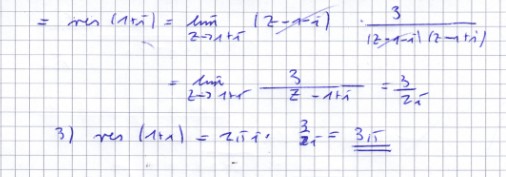 = res (1+i) = lim z→1+i (z-1-i) · 3 / (z-1-i)(z-1+i)
= lim z→1+i 3 / z-1+i = 3/2i
3) res (1+i) = 2πi · 3/2i = 3π